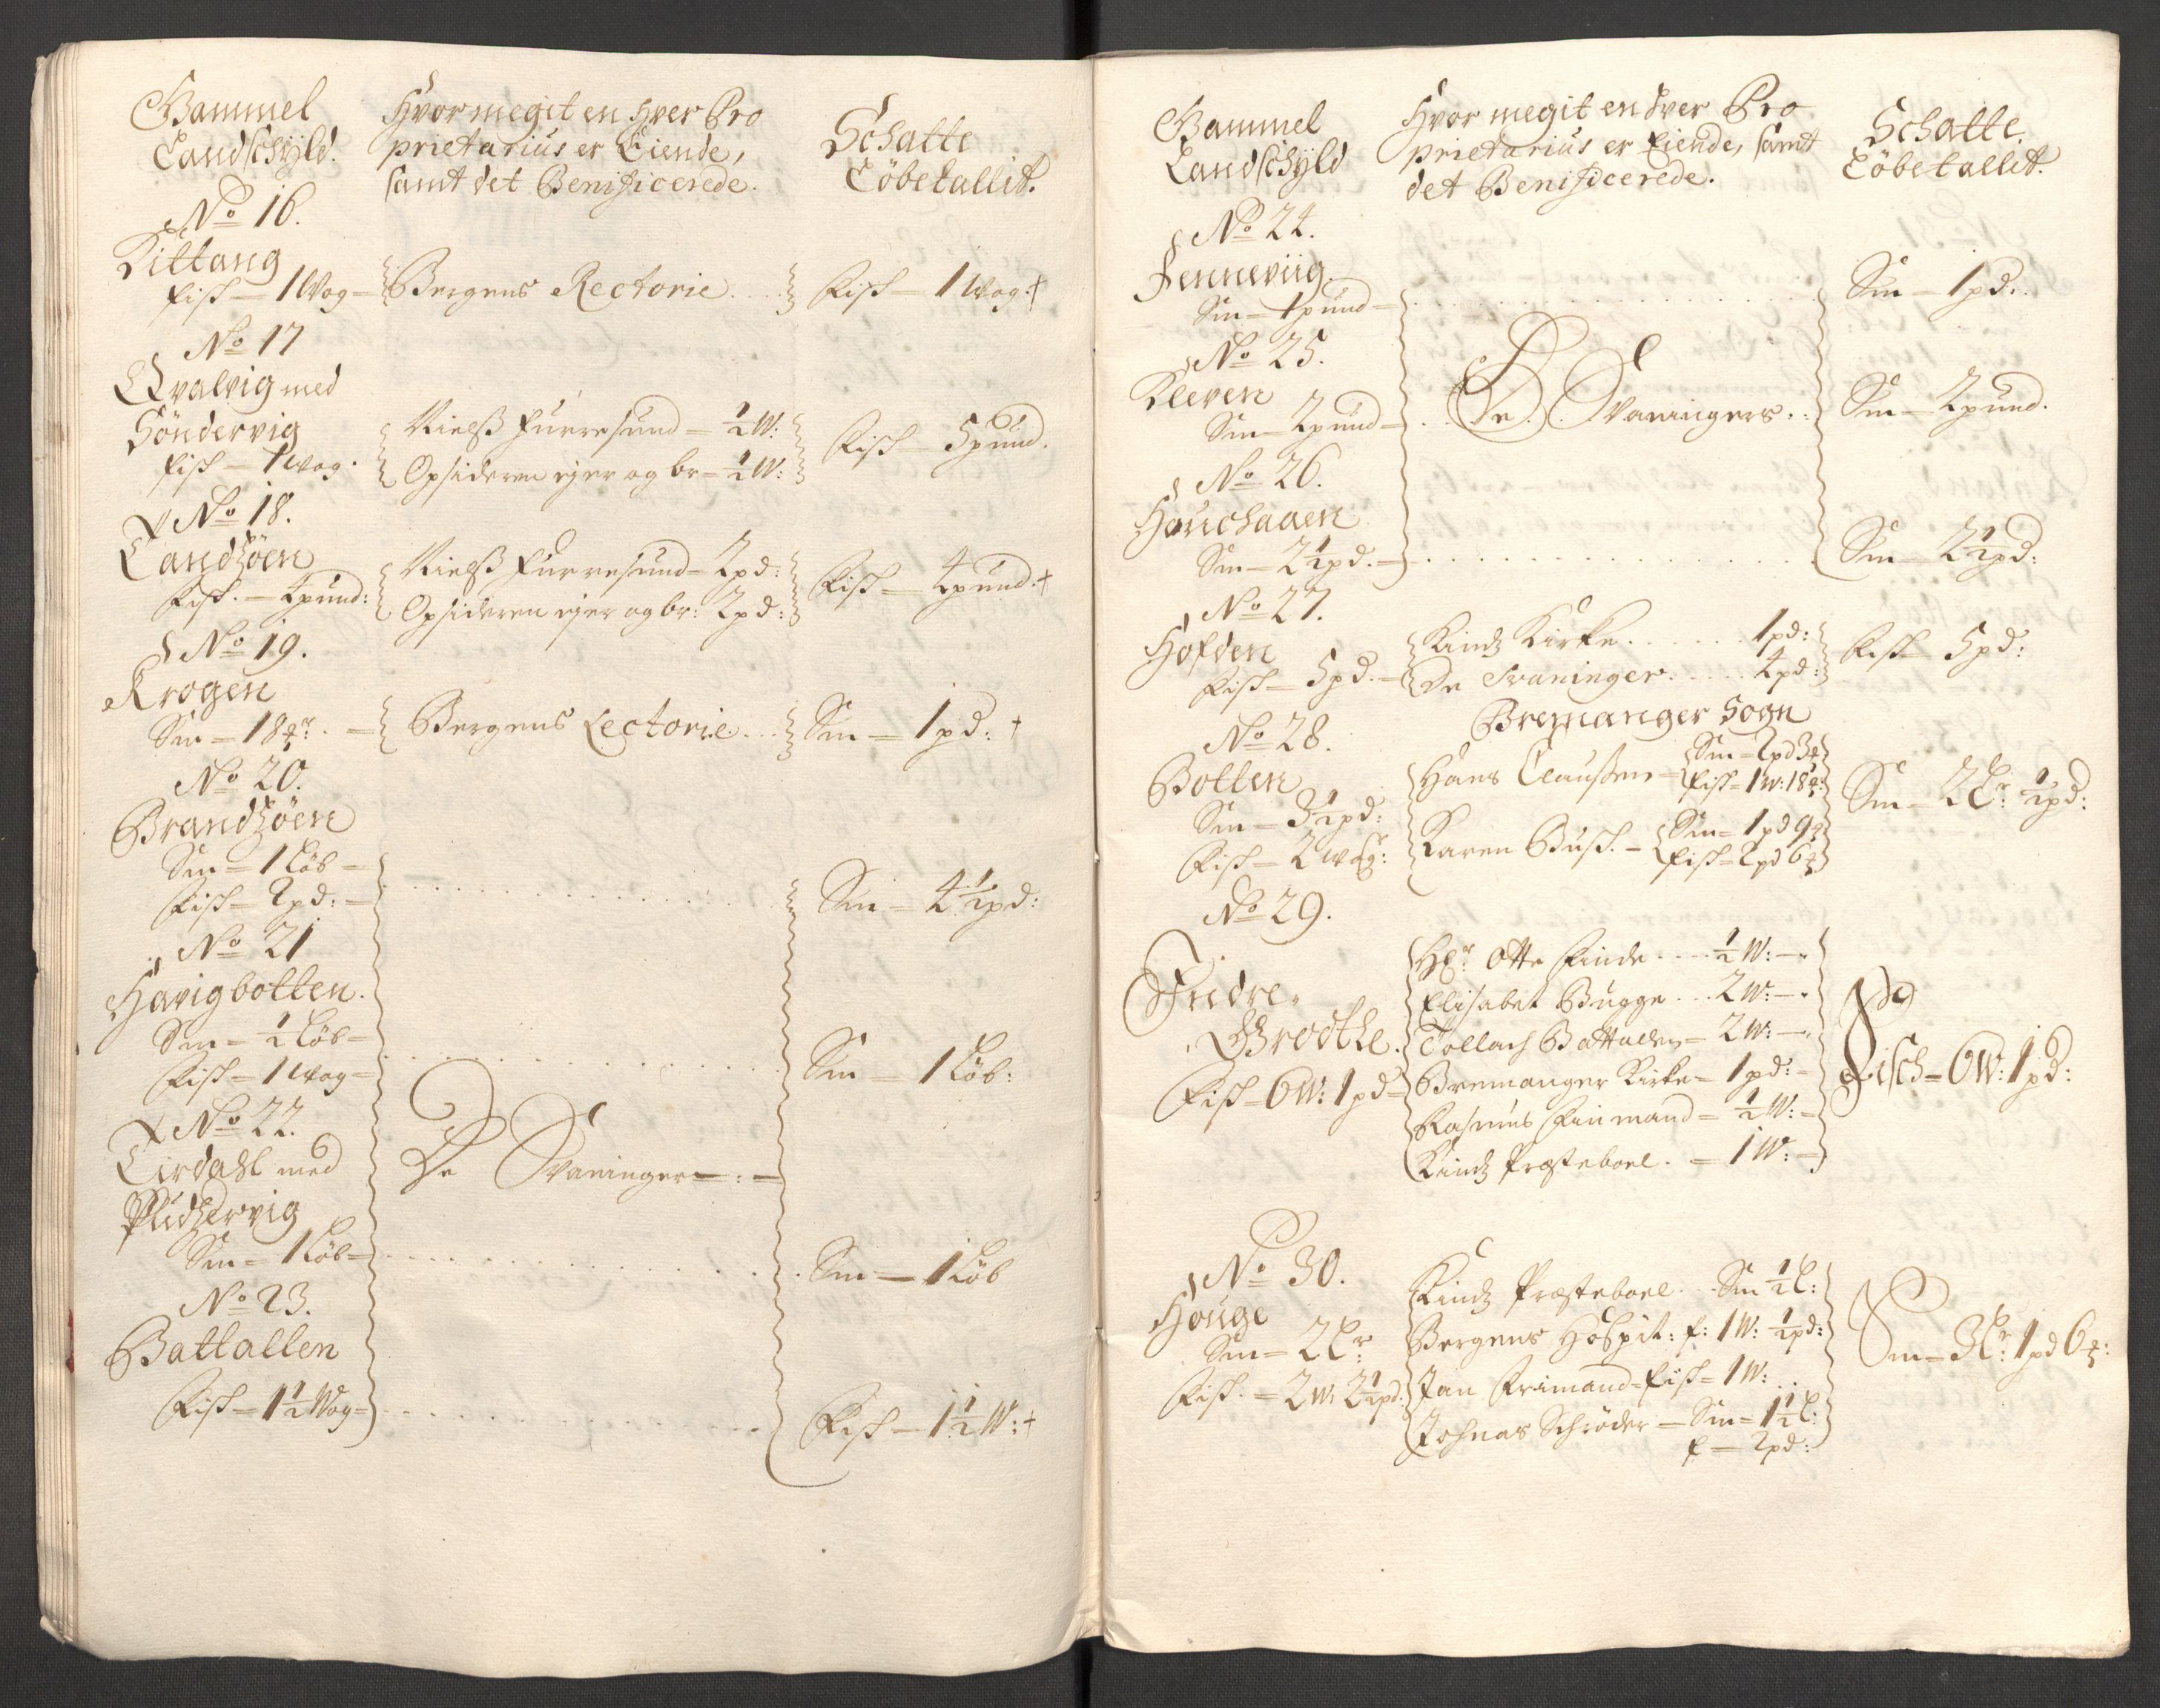 Gammel
Landschyld.
Hvormegit en hver Pro
prietarius er Eiende,
samt det Benificerede.
Schatte
Löbetallit.
No 16.
Kittang
Fisk — 1 Wog —
Bergens Rectorie . . . .
Fisk — 1 Wog: †
No 17
Qvalvig med
Söndervig
Fisk — 1 Wog.
Nielß Furresund — ½ W:
Opsideren ejer og br — ½ W:
Fisk — 5 pund.
No 18.
Landöen
Fisk. — 4 pund:
Nielß Furresund — 2 pd:
Opsideren ejer og br: 2 pd:
Fisk — 4 pund: †
No 19.
Krogen
Sm — 18 mr. —
Bergens Lectorie . . .
Sm — 1 pd: †
No 20.
Brandöen
Sm — 1 Löb —
Fisk — 2 pd: —
Sm — 4 ½ pd:
No 21
Havigbotten.
Sm — ½ Löb —
Fisk — 1 Wog —
Sm — 1 Löb:
No 22.
Lirdahl med
Sm = 1 Löb —
De Svaninger — : —
Sm — 1 Löb
No 23.
Battallen
Fisk — 1 ½ Wog —
Fisk — 1 ½ W: †
Gammel
Landschyld
Hvor megit en hver Pro
prietarius er Eiende, samt
det Benificerede.
Schatte
Löbetallit.
No 24.
Jenneviig.
Sm — 1 pund —
Sm — 1 pd.
No 25.
Kleven
Sm — 2 pund —
De Svaningers . .
Sm — 2 pund.
No 26.
Houchaaen
Sm — 2 ½ pd. —
Sm — 2 ½ pd:
No 27.
Hofden
Fisk — 5 pd. —
Kindz Kirke . . . . . . 1 pd:
De Svaninger . . . . . 4 pd:
Fisk — 5 pd:
Bremanger Sogn
No 28.
Botten
Sm — 3 ½ pd:
Fisk — 2 Wog:
Hans Claußen — Sm — 2 pd 3 mr
Fisk — 1 W: 18 mr:
Karen Busk. — Sm — 1 pd 9 mr
Fisk — 2 pd 6 mr
Sm — 2 Lr: ½ pd:
No 29.
Indre
Grodtle.
Fisk — 6 W: 1 pd —
Hr: Otte Finde . . . . ½ W: —
Elisabet Bugge . . . 2 W: —
Tollach Battalden — 2 W: —
Bremanger Kirke — 1 pd: —
Rasmus Finmand — ½ W: —
Kindz Præsteboel. — 1 W: —
Fisch — 6 W: 1 pd:
No 30.
Houge
Sm — 2 Lr:
Fisk. — 2 W: 2 ½ pd:
Kindz Præsteboel . . Sm ½ L:
Bergens Hospit: f: 1 W: ½ pd:
Jan Frimand — Fisk — 1 W: . .
Johnas Schröder — Sm — 1 ½ L:
F — 2 pd:
Sm — 3 Lr: 1 pd 6 mr: